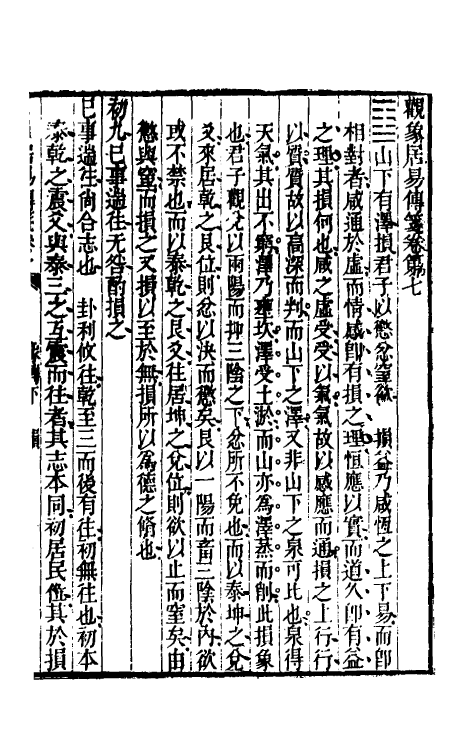 觀象居易傳箋卷第七
山下有澤損君子以懲忿窒欲 損益乃咸恆之上下易而卽
相對者咸通於虛而情感卽有損之理恒應以實而道久卽有益
之理其損何也咸之虛受受以氣氣故以感應而通損之上行行
以質質故以高深而判而山下之澤又非山下之泉可比也泉得
天氣其出不窮澤乃壅坎澤受土淤而山亦為澤蒸而削此損象
也君子觀兌以兩陽而抑三陰之下忿所不免也而以泰坤之兌
爻來居乾之艮位則忿以決而懲矣艮以一陽而畜三陰於內欲
或不禁也而以泰乾之艮爻往居坤之兌位則欲以止而窒矣由
懲與窒而損之又損以至於無損所以為德之脩也
初九巳事遄往无咎酌損之
巳事遄往尙合志也 卦利攸往乾至三而後有往初無往也初本
泰乾之震爻與泰三之互震而往者其志本同初居民位其於損